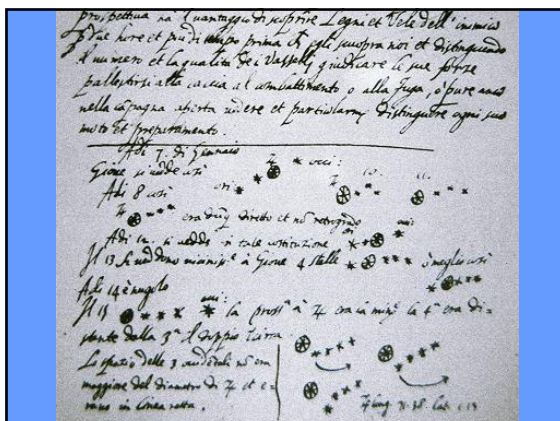 prospettiva nà l vantaggio di scoprire Legni et Vele dell' inimico
due hore et più di tempo prima ch egli scuopra noi et distinguendo
il numero et la qualità de i Vasselli giudicare le sue forze
pallestirsi alla caccia al combattimento o alla fuga, o pure anco
nella capagna aperta vedere et particolarm. distinguere ogni suo
moto et preparamento.
Adi 7. di Gennaio
Gioue si vede così occi:
Adi 8 così ori: 10. 11.
♃ era dūq diretto et nō retrogrado
Adi 12. si vedde in tale costituzione
Il 13 si veddono à Gioue 4 stelle ò meglio così
Adi 14 è nugolo
Il 15 occi: la pross.ª à ♃ era la min.ª la 4.ª era di=
stante dalla 3.ª il doppio
Lo spatio delle 3 occidētali nō era
maggiore del diametro di ♃ et e=
rano in linea retta.